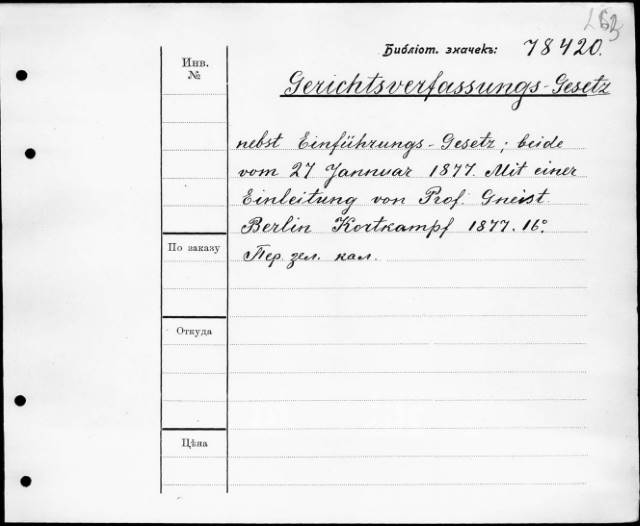 L63
Библіот. значекъ: 78420.
Инв.
№
Gerichtsverfassungs-Gesetz
nebst Einführungs-Gesetz; beide
vom 27 Jannuar 1877. Mit einer
Einleitung von Prof. Gneist.
Berlin Kortkampf 1877. 16°.
По заказу
Пер. зел. кал.
Откуда
Цѣна